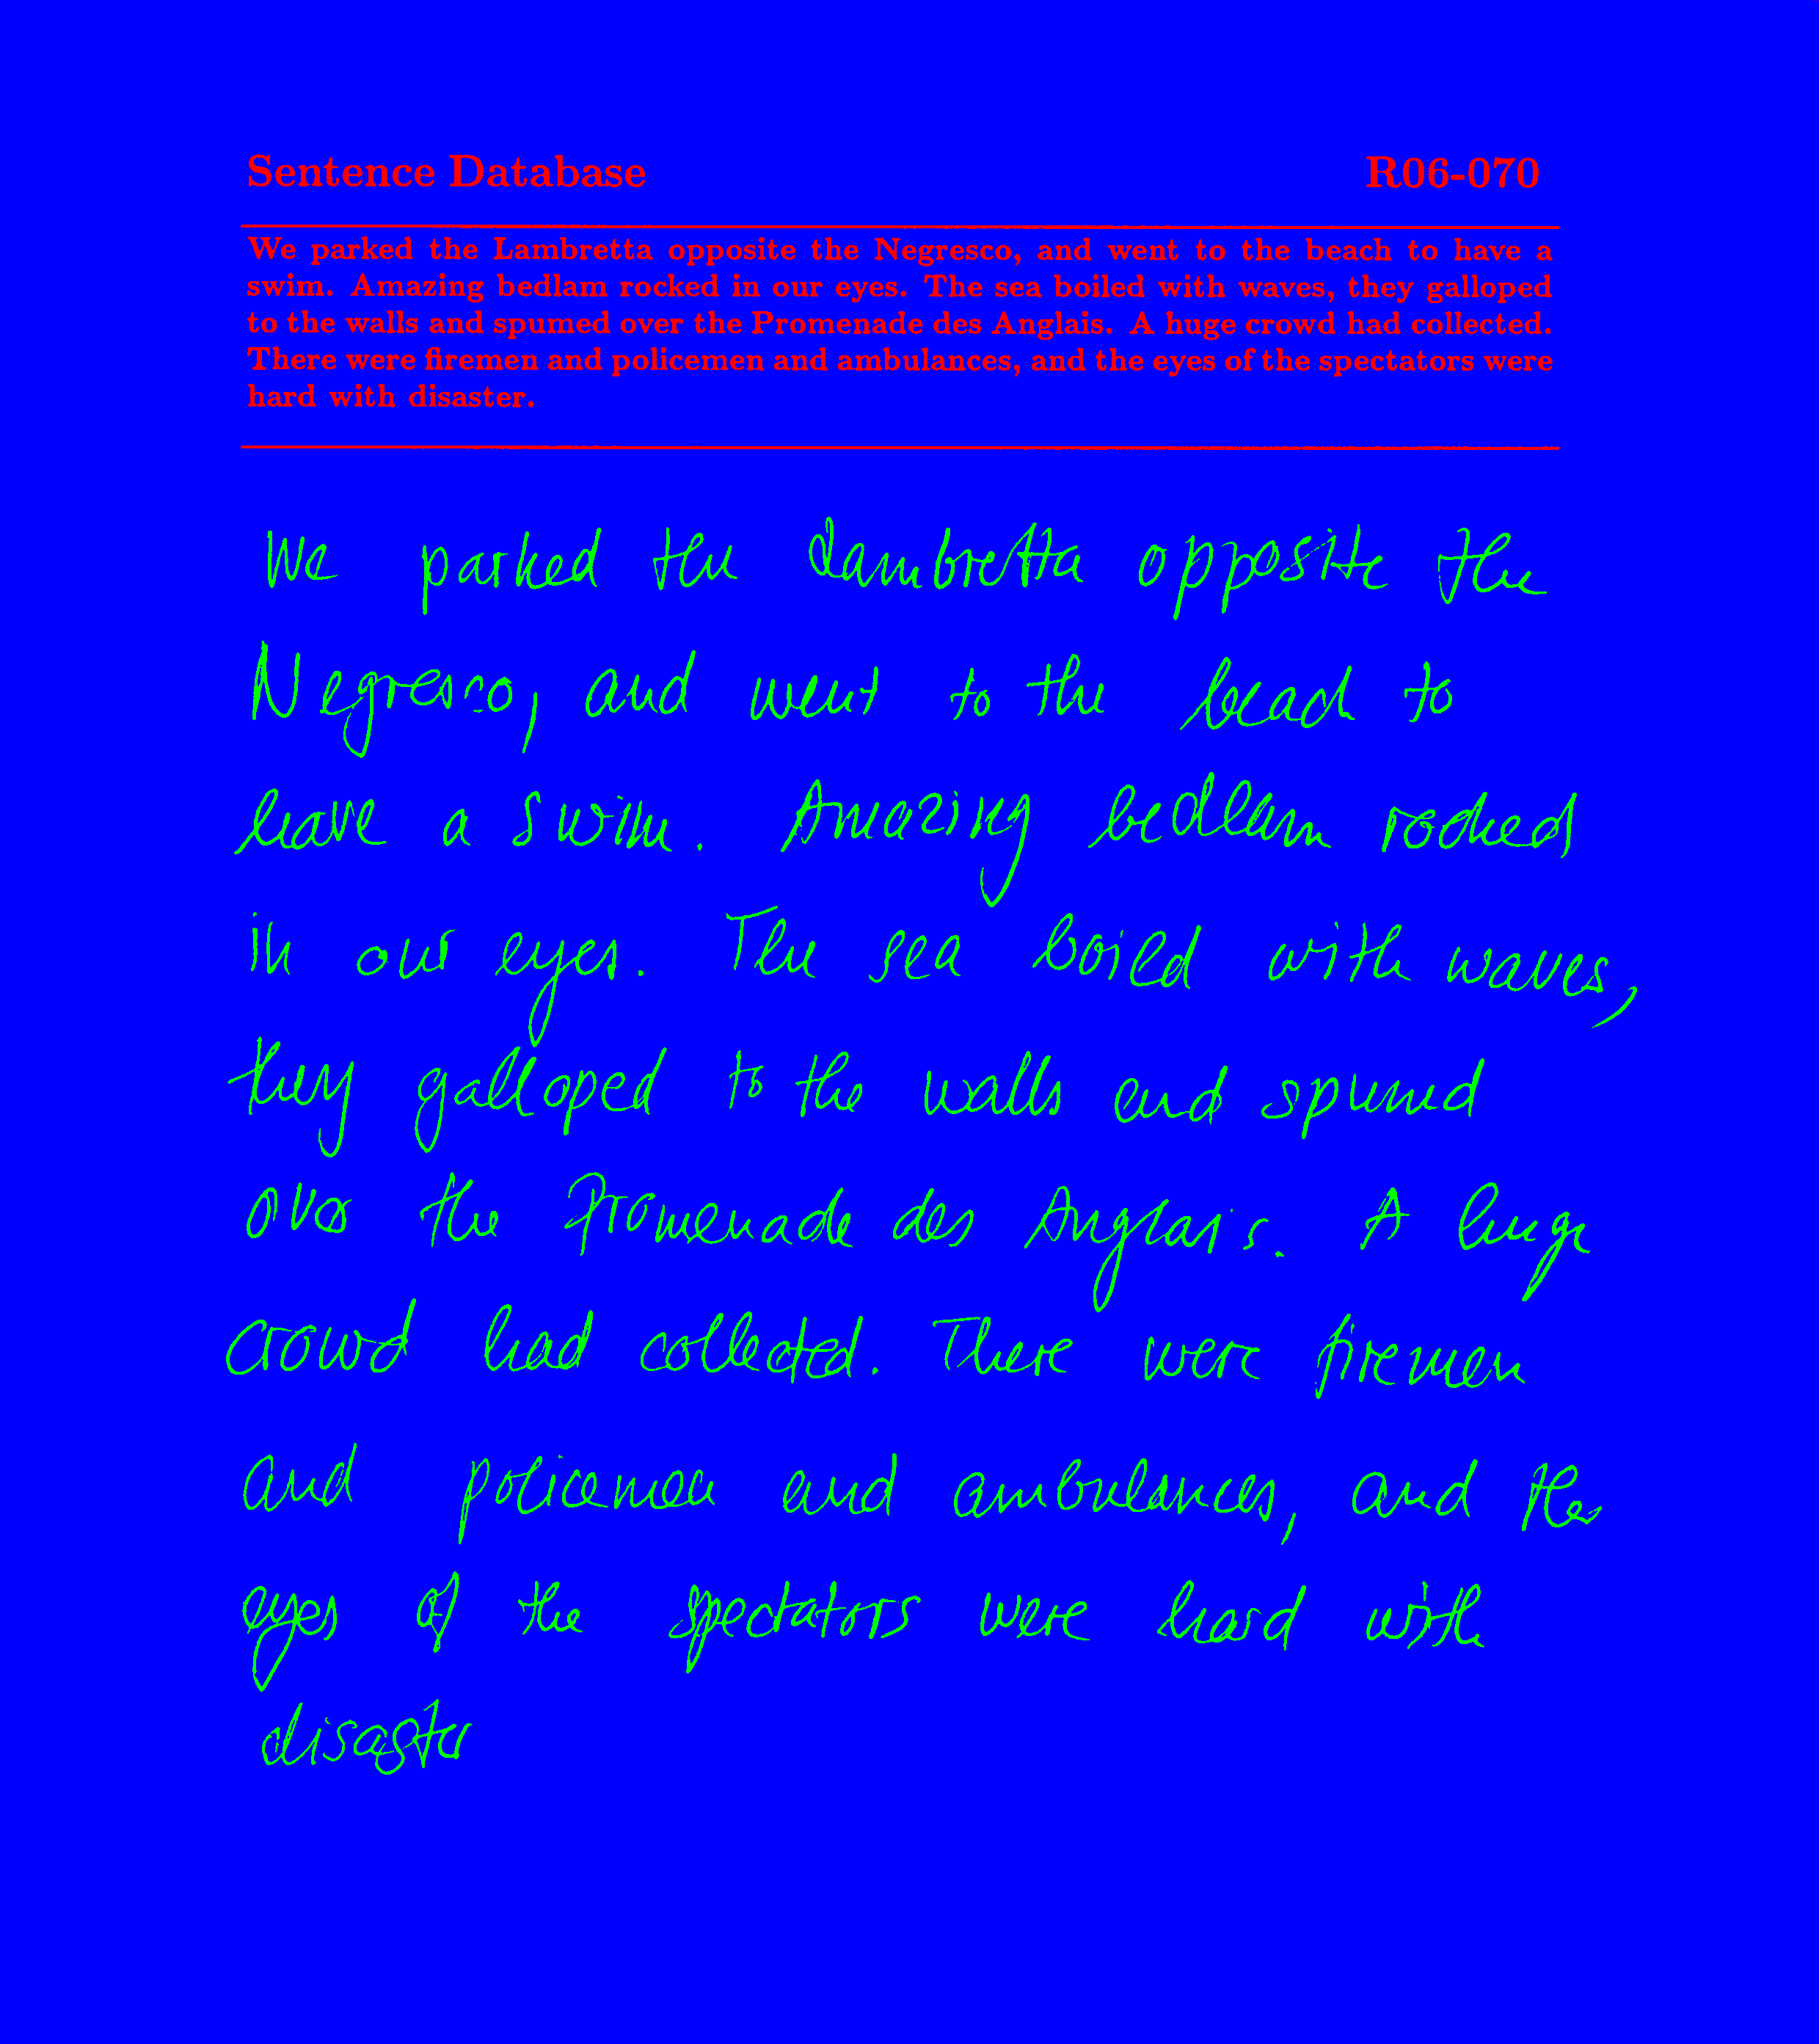 Sentence Database R06-070
We parked the Lambretta opposite the Negresco, and went to the beach to have a
swim. Amazing bedlam rocked in our eyes. The sea boiled with waves, they galloped
to the walls and spumed over the Promenade des Anglais. A huge crowd had collected.
There were firemen and policemen and ambulances, and the eyes of the spectators were
hard with disaster.
We parked the Lambretta opposite the
Negresco, and went to the beach to
have a swim. Amazing bedlam rocked
in our eyes. The sea boiled with waves,
they galloped to the walls and spumed
over the Promenade des Anglais. A huge
crowd had collected. There were firemen
and policemen and ambulances, and the
eyes of the spectators were hard with
disaster